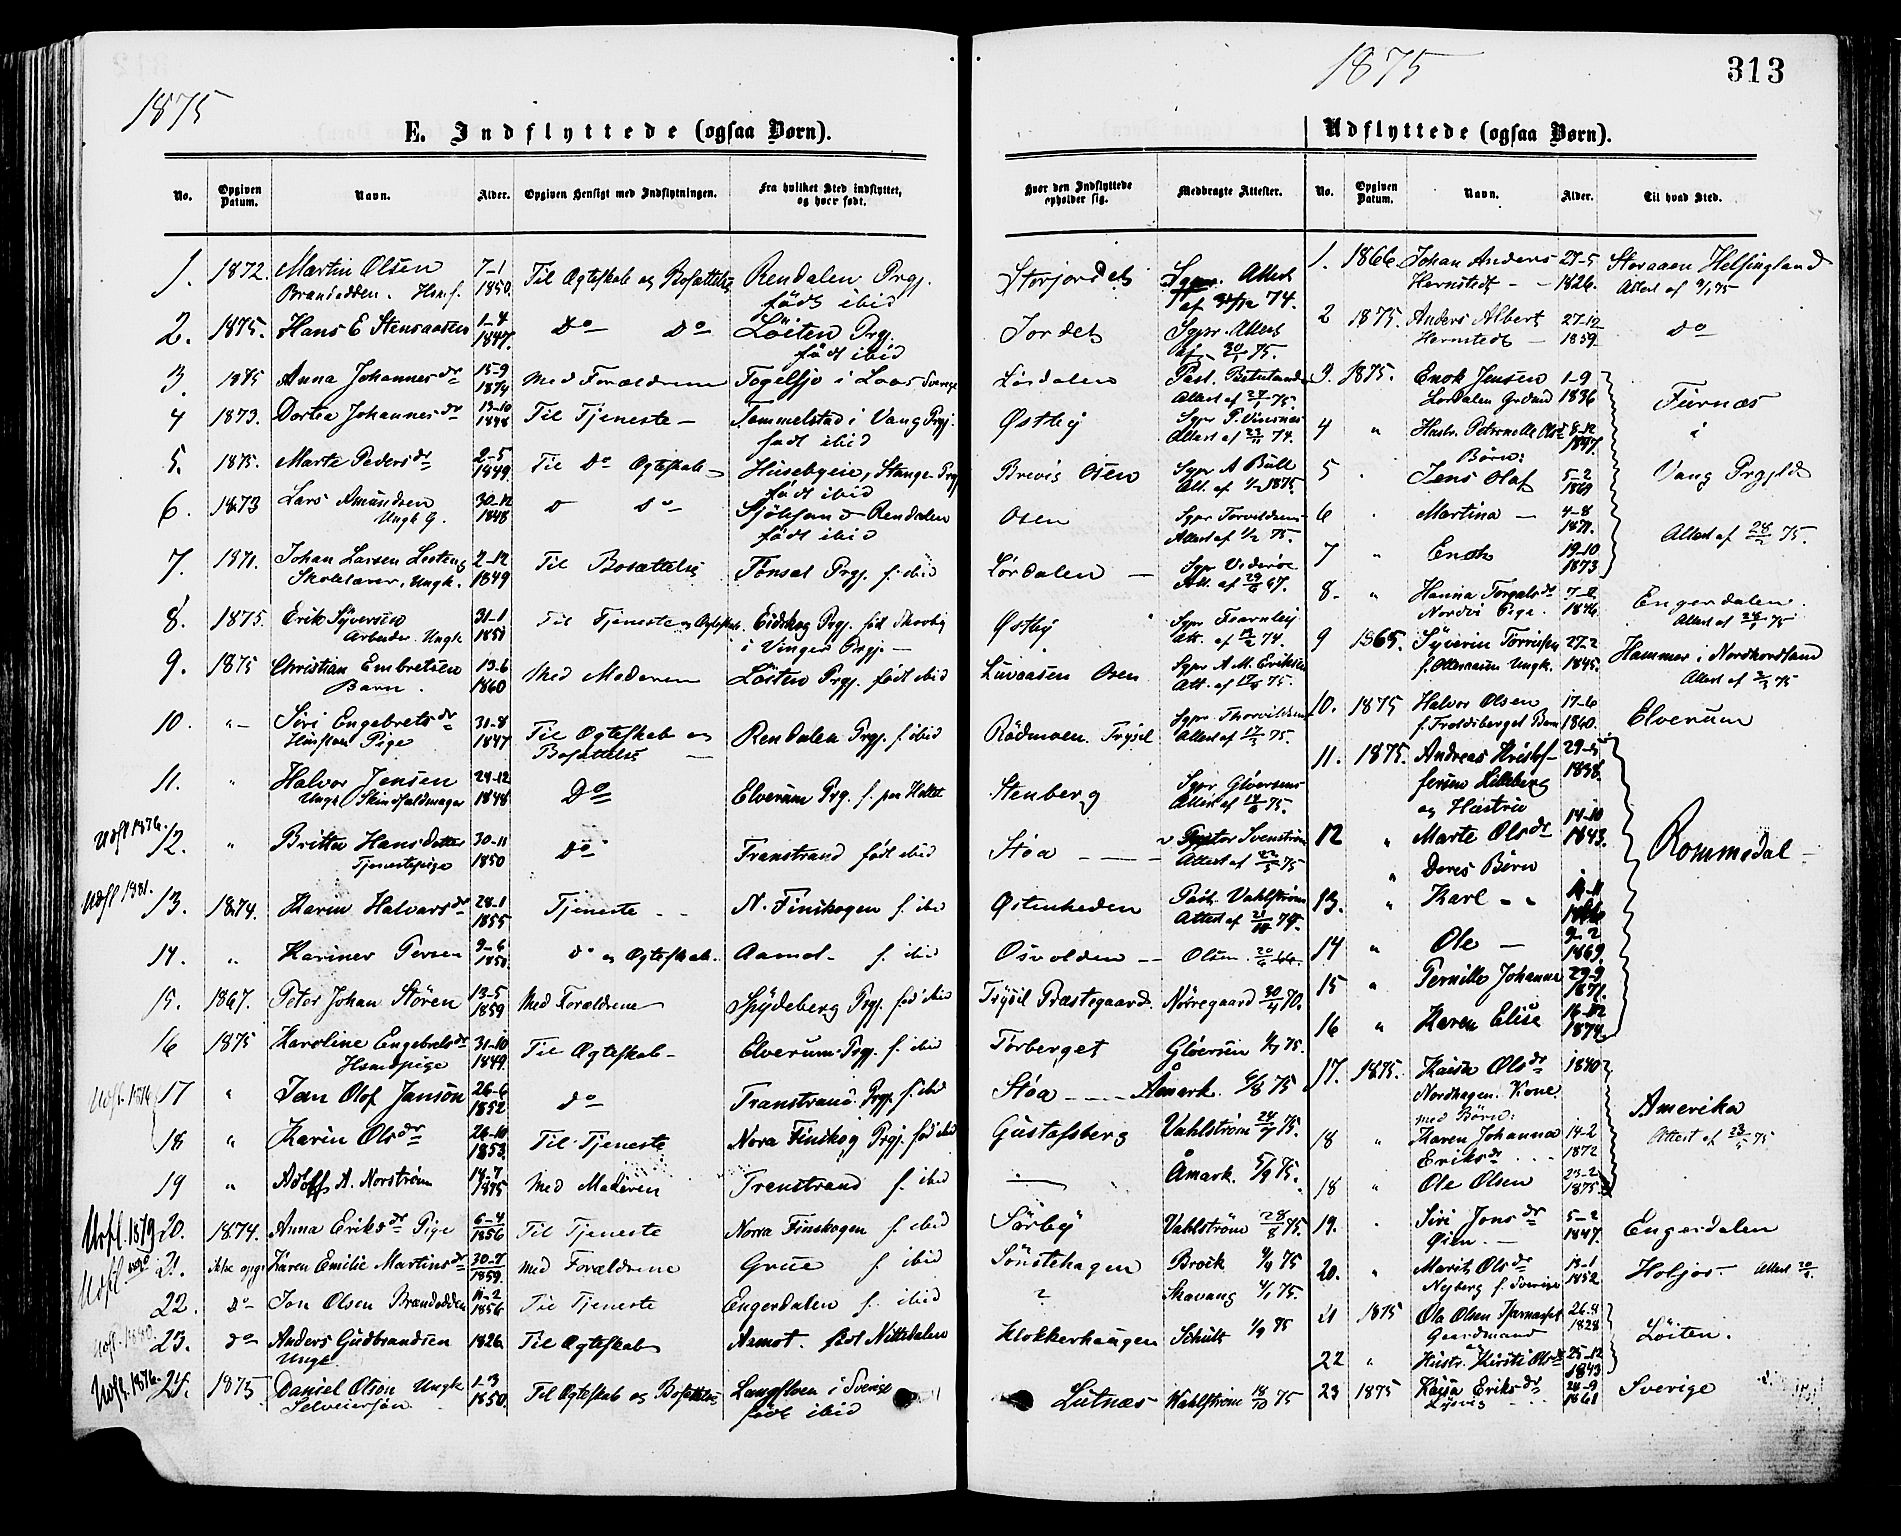 1875
E. Indflyttede (ogsaa Børn).
No. Opgiven Datum. Navn. Alder. Opgiven Hensigt med Indflytningen. Fra hvilket Sted indflyttet, og hvor født.
1. 1872. Martin Olsen 7-1 1850. Til Ægteskab og Bosættelse Rendalen Prgj.
Brandodden. født ibid
2. 1875. Hans E Stensaasen 1-4 1847. Do Do Löiten Prgj.
født ibid
3. 1875 Anna Johannesdr 15-9 1874 Med Forældrene i Sverige
4 1873. Dortea Johannesdr 13-10 1848 Til Tjeneste - i Vang Prgj.
født ibid
5. 1875. Marte Pedersdr 2-5 1849. Til Do Ægteskab Stange Prgj
født ibid
6. 1873 Lars Amundsen 30-12 1848 Do Rendalen
Ungk. født ibid
7. 1871. Johan Larsen 2-12 1849 Til Bosættelse Tönsæt Prgj. f. ibid
Skolelærer, Ungk.
8. 1875. Erik Syversen 31-1 Til Tjeneste og Ægteskab. Eidskog Prgj. født
Arbeider. Ungk i Vinger Prgj. -
9. 1875 Christian Embretsen 13-6 1860 Med Moderen Löiten Prgj. født ibid
Barn.
10. " Siri Engebretsdr 31-8 1847 Til Ægteskab og Rendalen Prgj. f. ibid
Pige Bosættelse
11. " Halvor Jensen 24-12 1848 Do Elverum Prg. f.
Ungk.
Udfl 1876. 12. " Britta Hansdatter 30-11 1850 Do Transtrand født ibid
Tjenestepige
Udfl 1881. 13. 1874. Karin Halvarsdr 28-1 1855 Tjeneste N. Finskogen f. ibid
14. " Persen 9-6 do og Ægteskab. Aamot - f. ibid
15. 1867. Peter Johan Stören 13-5 1859 Med Forældrene Spydeberg Prgj. fød ibid
16 1875 Karoline Engebretsdr 31-10 1849. Til Ægteskab - Elverum Prgj. f. ibid
17 " Jan Olof Janson 26-6 1852 do Transtrand Prgj. f. ibid
18 " Karin Olsdr 26-10 1853 Til Tjeneste Nora Finskog Prgj. fød ibid
19 " Adolf A. Norström 14-7 1875 Med Moderen Transtrand f. ibid
Udfl. 1879 20. 1874. Anna Eriksdr Pige 6-4 1856 Til Tjeneste Norra Finskogen f. ibid
Udfl 21. ikke opgr Karen Emilie Martinsdr 30-7 1859. Med Forældrene Grue f ibid
22. Do Jon Olsen Brandodden 1856 Til Tjeneste Engerdalen f. ibid
23. do Anders Gudbrandsen 1826. Til Ægteskab Aamot. fød Nittedalen
Ungk.
Udfl. 1876. 24. 1875 Daniel Olson Ungk 1-3 1850. Til Ægteskab og Bosættelse i Sverige
Selveiersön født ibid
1875 313
Hvor den Indflyttede opholder sig. Medbragte Attester.
Storjordet Sgpr. Attest af 74.
Jordet Sgpr. Attest af 30/1 75.
Lørdalen Past. Attest af 75.
Østby Sgpr P. Attest af 74.
Osen Sgpr A Bull Att. af 1875.
Osen Sgpr Attest af 1/2 75.
Lørdalen - Sgpr Att. af 67.
Østby Sgpr Fearnley Att. af 74.
Osen Sgpr A. M. Eriksen Att. af 75.
Rödmoen. Trysil Sgpr. Attest af 75.
Stenberg Sgpr Gløersens Attest af 75.
Støa Pastor Attest af 75
Østenheden Past. Vahlström Attest af 74.
Osvolden Olsen
Trysil Præstegaard. Nørregaard 70.
Torberget Gløersen 75.
Støa Åmark. 6/8 75
Gustafsberg Vahlström 75.
Åmark. 75.
Sörby Vahlström 28/8 75.
Sönstehagen Brock 75
? Skavang 75.
Klokkerhaugen Schult 1/9 75
Lutnæs Wahlström 18/10 75
Udflyttede (ogsaa Børn).
No. Opgiven Datum. Navn. Alder. Til hvad Sted.
1. 1866. Johan Anders 27-5 1826. Storaaen Helsingland
Hernstedt Attest af 75
2 1875. Anders Albert 27-12 1859 do
Hernstedt
3. 1875. Enok Jensen 1-9 1836 Furnæs
Lørdalen
4 " Hustr. Petronelle Olsd 8-12 1847. i
Børn:
5 Jens Olaf 5-2 1869 Vang Prgjld
6 Martina - 4-8 1871. Attest af 28/2 75.
7 " Enok 19-10 1873
8 " Hanna 1846 Engerdalen.
Pige. Attest af 75
9 1865. 27-2 1845. Hammer i Nordhordland
Ungk. Attest af 75
10. 1875 Halvor Olsen 17-6 1860. Elverum
11. 1875. Andreas Kristof- 29-5 1838.
fersen Lilleberg
og Hustru
12 " Marte Olsdr 14-10 1843. Rommsdal -
Deres Børn
13. " Karl
14 " Ole - 9-2 1869.
15 " Pernille Johanne 29-9 1871.
16 " Karen Elise 16-12 1874.
17. 1875. Kaisa Olsdr 1840
Nordhagen. Kone
med Børn: Amerika
18 " Karen Johanna 14-2 1872 Attest af 75
Eriksdr
18 " Ole Olsen 23-2 1875.
19. " Siri Jonsdr 5-2 1847. Engerdalen
Øien.
20. " Marit Olsdr 13-1 1852. Holjos - Attest
Nyberg f. Sverige
21 1875 Ola Olsen 26-4 1828 Löiten.
Gaardmand
22 " Hustr. Kirsti Olsdr 25-12 1843
23 1875 Kaisa Eriksdr 1861 Sverige